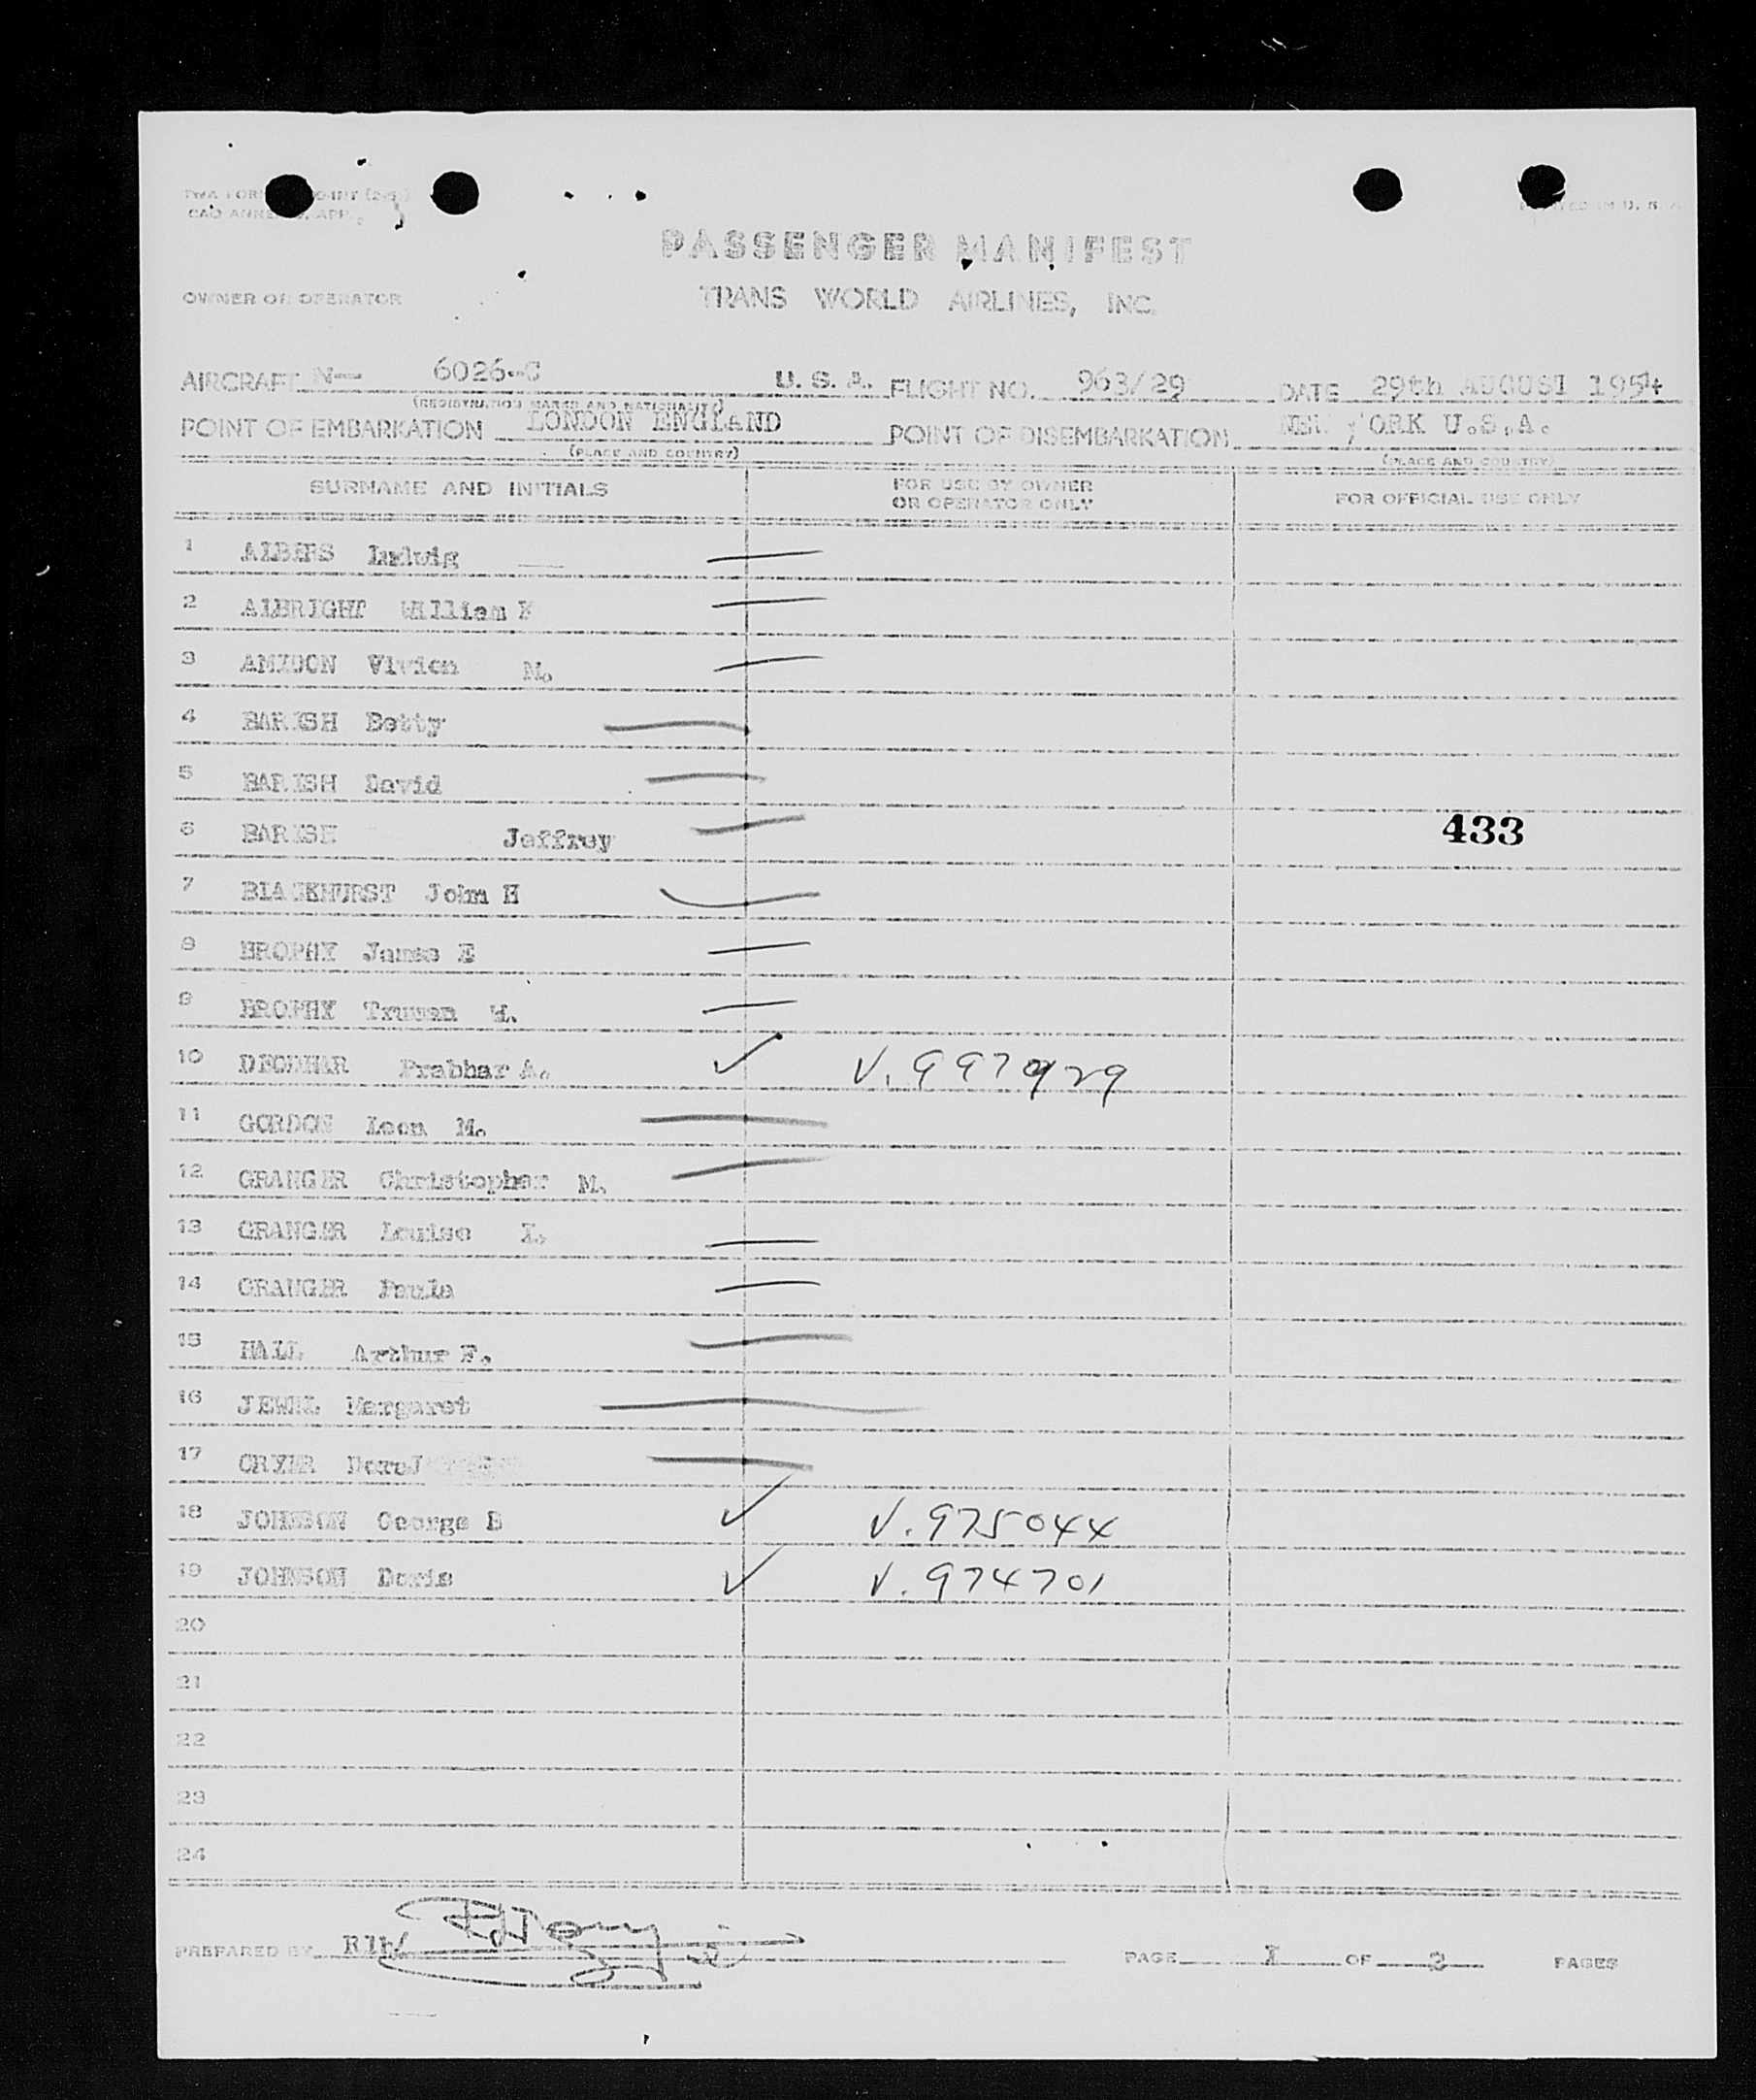 PASSENGER MANIFEST
OWNER OR OPERATOR TRANS WORLD AIRLINES, INC.
AIRCRAFT N— 6026-C U. S. A. FLIGHT NO. 963/29 DATE 29th AUGUST 1954
(REGISTRATION MARKS AND NATIONALITY)
POINT OF EMBARKATION LONDON ENGLAND POINT OF DISEMBARKATION NEW YORK U.S.A.
(PLACE AND COUNTRY) (PLACE AND COUNTRY)
SURNAME AND INITIALS FOR USE BY OWNER OR OPERATOR ONLY FOR OFFICIAL USE ONLY
1 ALBERS Ludwig
2 ALBRIGHT William F
3 AMIDON Vivien M.
4 BARISH Betty
5 BARISH David
6 BARISH Jeffrey 433
7 BLACKHURST John H
8 BROPHY James E
9 BROPHY Truman W.
10 DEODHAR Prabhar A. ✓ V. 997929
11 GORDON Leon M.
12 GRANGER Christopher M.
13 GRANGER Louise I.
14 GRANGER Paula
15 HALL Arthur F.
16 JEWEL Margaret
17 CRYER
18 JOHNSON George B ✓ V. 975044
19 JOHNSON Doris ✓ V. 974701
20
21
22
23
24
PREPARED BY Rlh/ PAGE 1 OF 2 PAGES